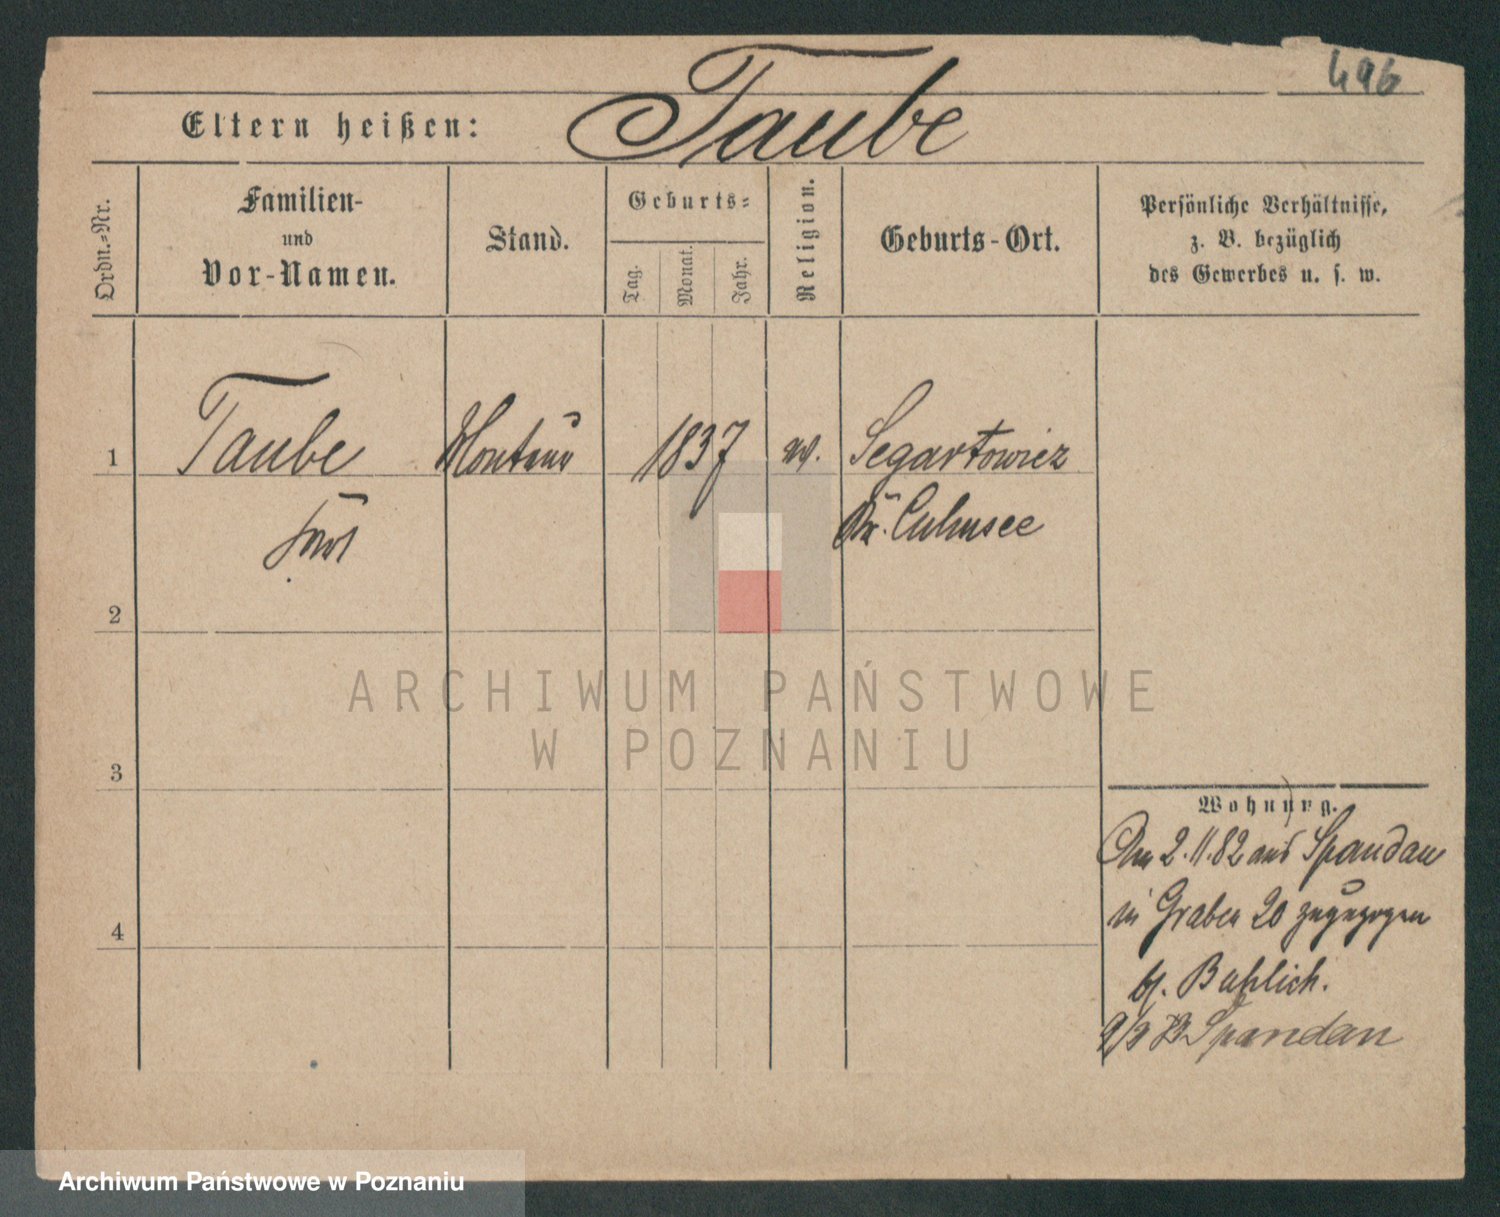 496
Taube
Eltern heißen:
Ordn.-Nr.
Familien-
und
Vor-Namen.
Stand.
Geburts-
Tag.
Monat.
Jahr.
Religion.
Geburts-Ort.
Persönliche Verhältnisse,
z. B. bezüglich
des Gewerbes u. s. w.
1
Taube
Monteur
1837
Segartowicz
Kr. Culmsee
2
3
4
ARCHIWUM PAŃSTWOWE
W POZNANIU
Wohnung.
Am 2.11.82 aus Spandau
in Graben 20 zugezogen
b/.
Spandau
Archiwum Państwowe w Poznaniu